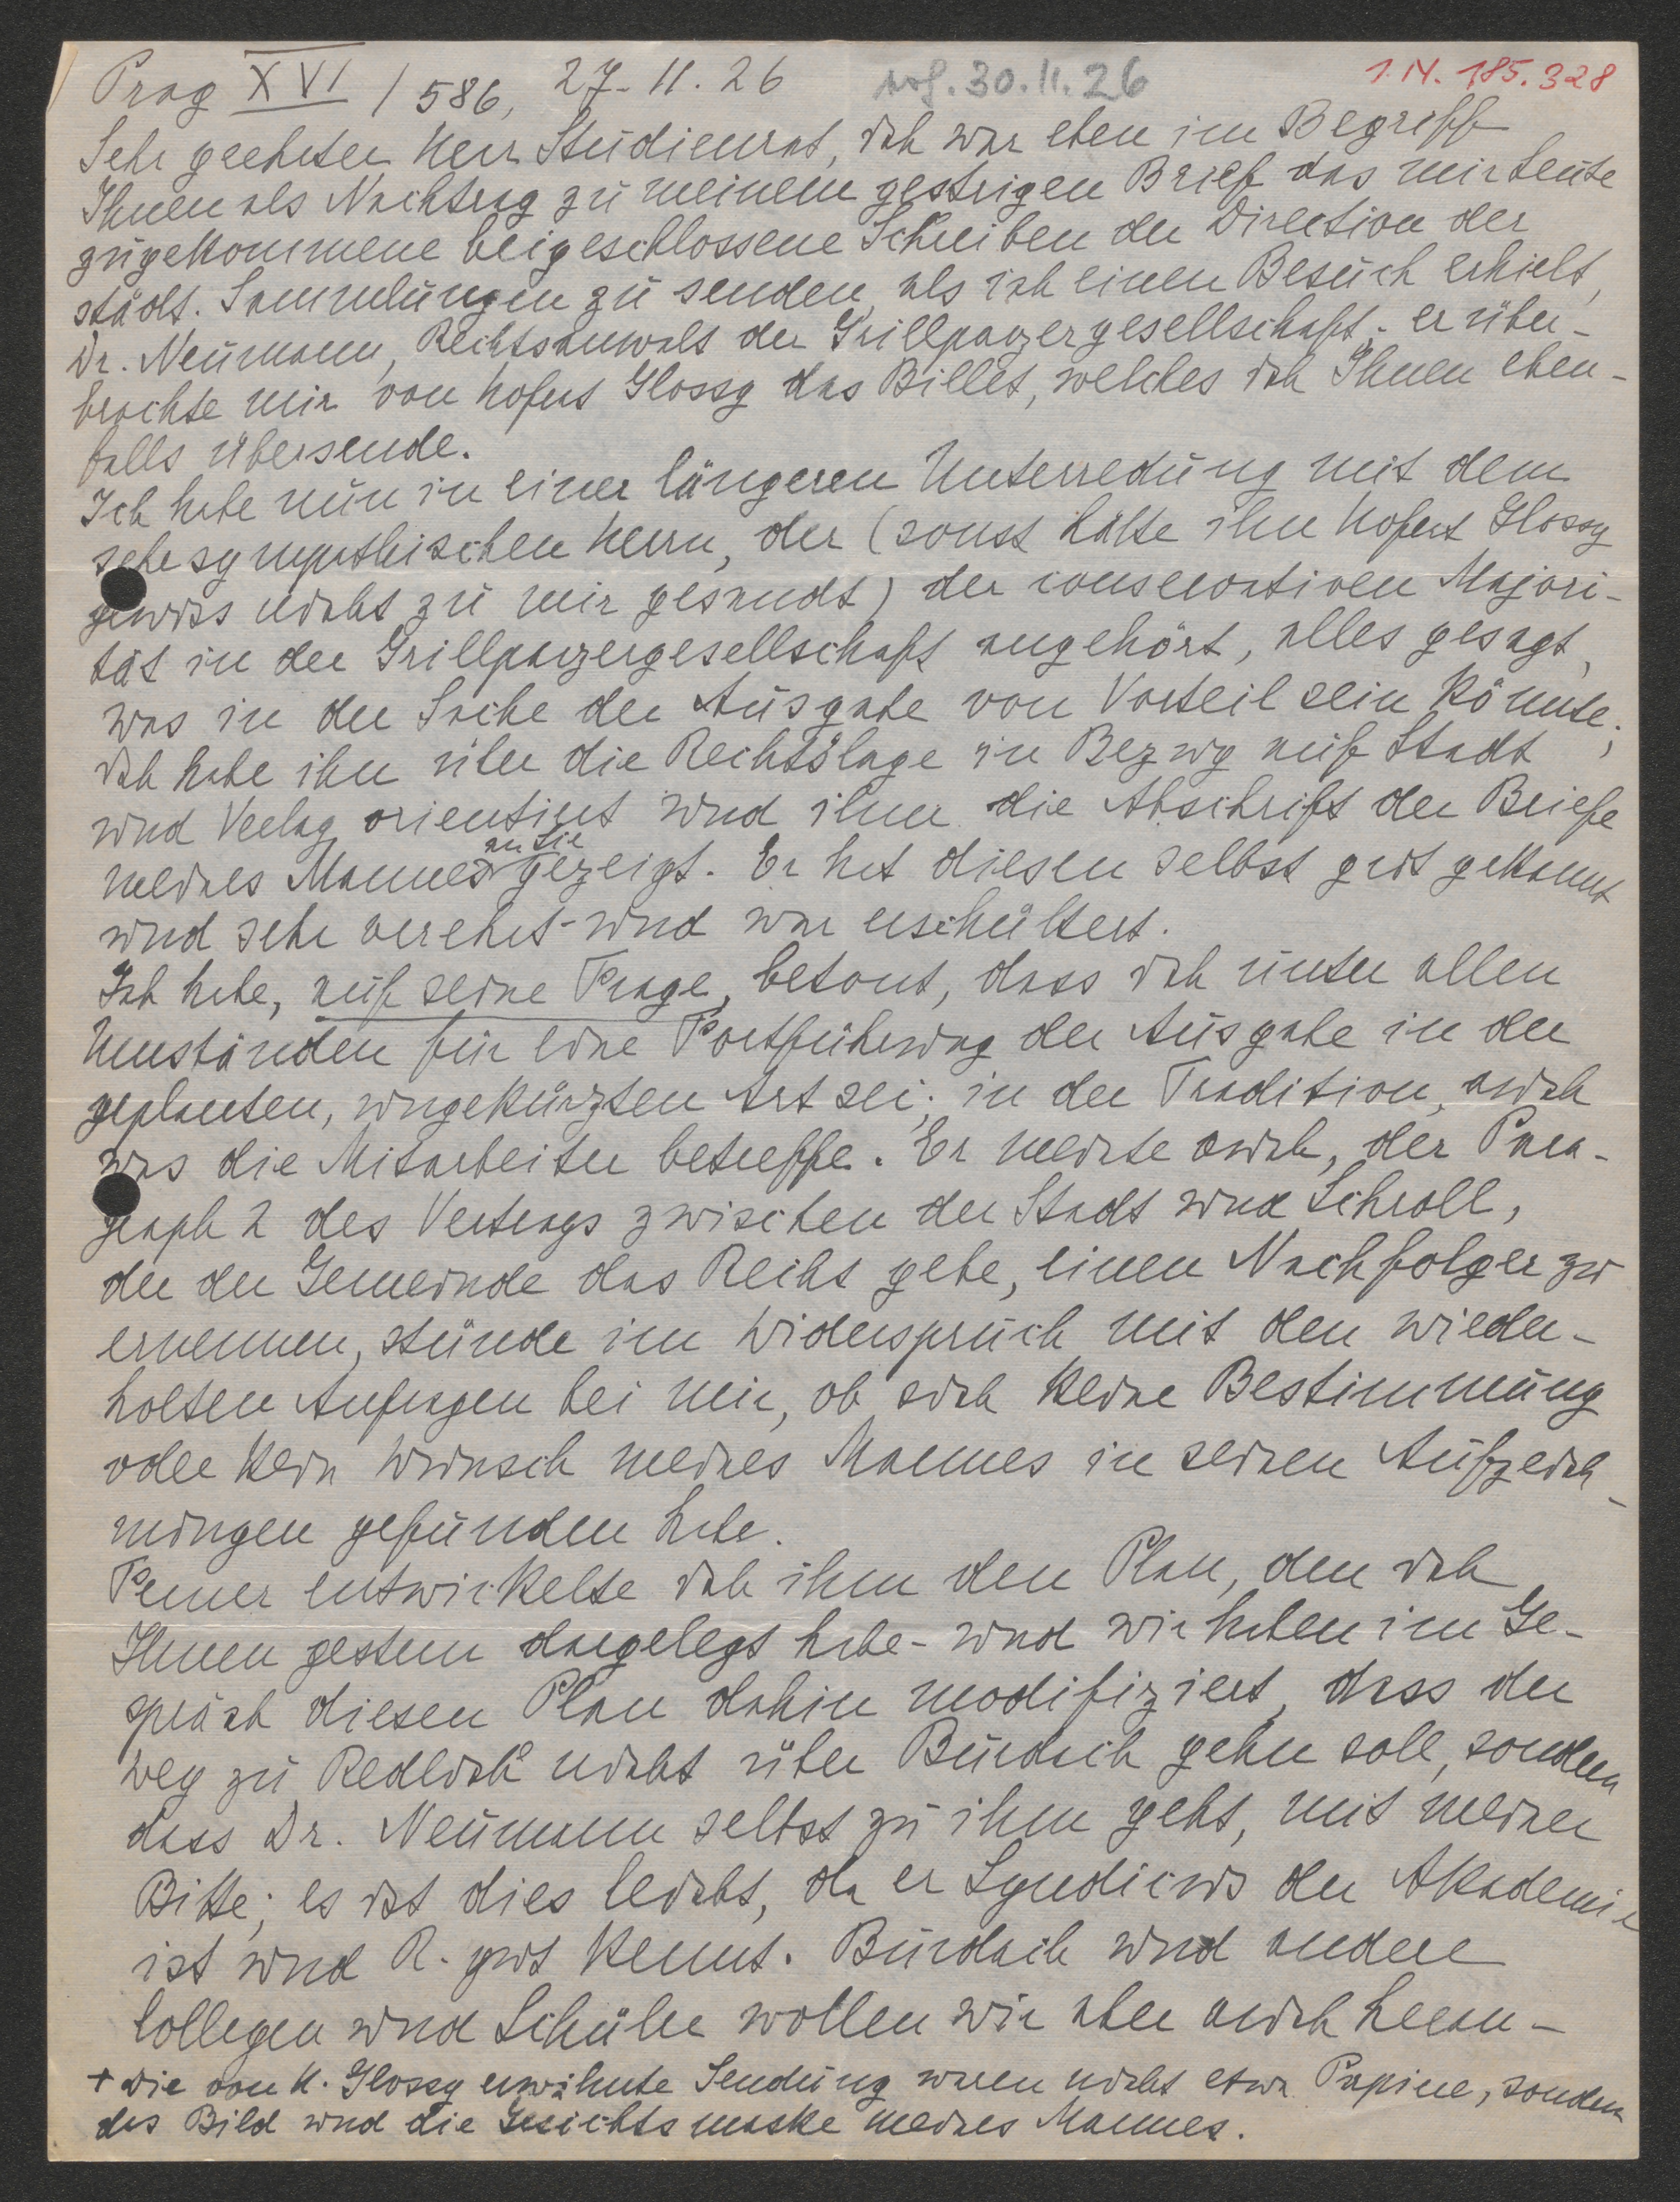 Prag XVI / 586, 27. 11. 26 30. 11. 26 I. N. 185.328
Sehr geehrter Herr Studienrat, ich war eben im Begriff
Ihnen als Nachtrag zu meinem gestrigen Brief das mir heute
zugekommene beigeschlossene Schreiben der Direction der
städt. Sammlungen zu senden, als ich einen Besuch erhielt,
Dr. Neumann, Rechtsanwalt der Grillparzergesellschaft; er über-
brachte mir von Hofrat Glossy das Billet, welches ich Ihnen eben-
falls übersende.
Ich habe nun in einer längeren Unterredung mit dem
sehr sympathischen Herrn, der (sonst hätte ihn Hofrat Glossy
gewiss nicht zu mir gesandt) der conservativen Majori-
tät in der Grillparzergesellschaft angehört, alles gesagt,
was in der Sache der Ausgabe von Vorteil sein könnte;
ich habe ihn über die Rechtslage in Bezug auf Stadt
und Verlag orientiert und ihm die Abschrift der Briefe
meines Mannes an Sie gezeigt. Er hat diesen selbst gut gekannt
und sehr verehrt - und war erschüttert.
Ich habe, auf seine Frage, betont, dass ich unter allen
Umständen für eine Fortführung der Ausgabe in der
geplanten, ungekürzten Art sei; in der Tradition, auch
was die Mitarbeiter betreffe. Er meinte auch, der Para-
graph 2 des Vertrags zwischen der Stadt und Schroll,
der der Gemeinde das Recht gebe, einen Nachfolger zu
ernennen, stünde im Widerspruch mit den wieder-
holten Anfragen bei mir, ob sich keine Bestimmung
oder kein Wunsch meines Mannes in seinen Aufzeich-
nungen gefunden habe.
Ferner entwickelte ich ihm den Plan, den ich
Ihnen gestern dargelegt habe - und wir haben im Ge-
spräch diesen Plan dahin modifiziert, dass der
Weg zu Redlich nicht über Burdach gehn soll, sondern
dass Dr. Neumann selbst zu ihm geht, mit meiner
Bitte; es ist dies leicht, da er Syndicus der Akademie
ist und R. gut kennt. Burdach und andere
Collegen und Schüler wollen wir aber auch heran-
+ Die von H. Glossy erwähnte Sendung waren nicht etwa Papiere, sondern
das Bild und die Gesichtsmaske meines Mannes.